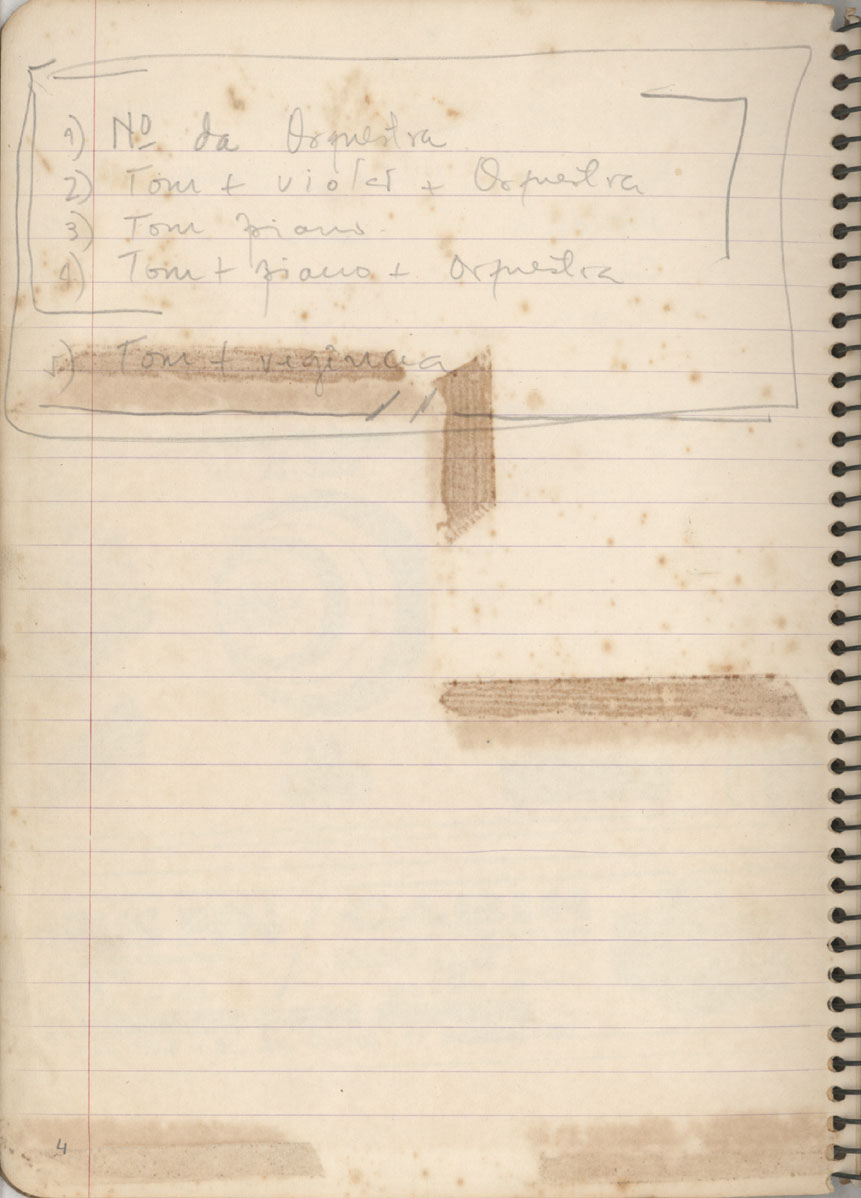 1) Nº da Orquestra
2) Tom + violão + Orquestra
3) Tom piano
4) Tom + piano + Orquestra
5) Tom +
4